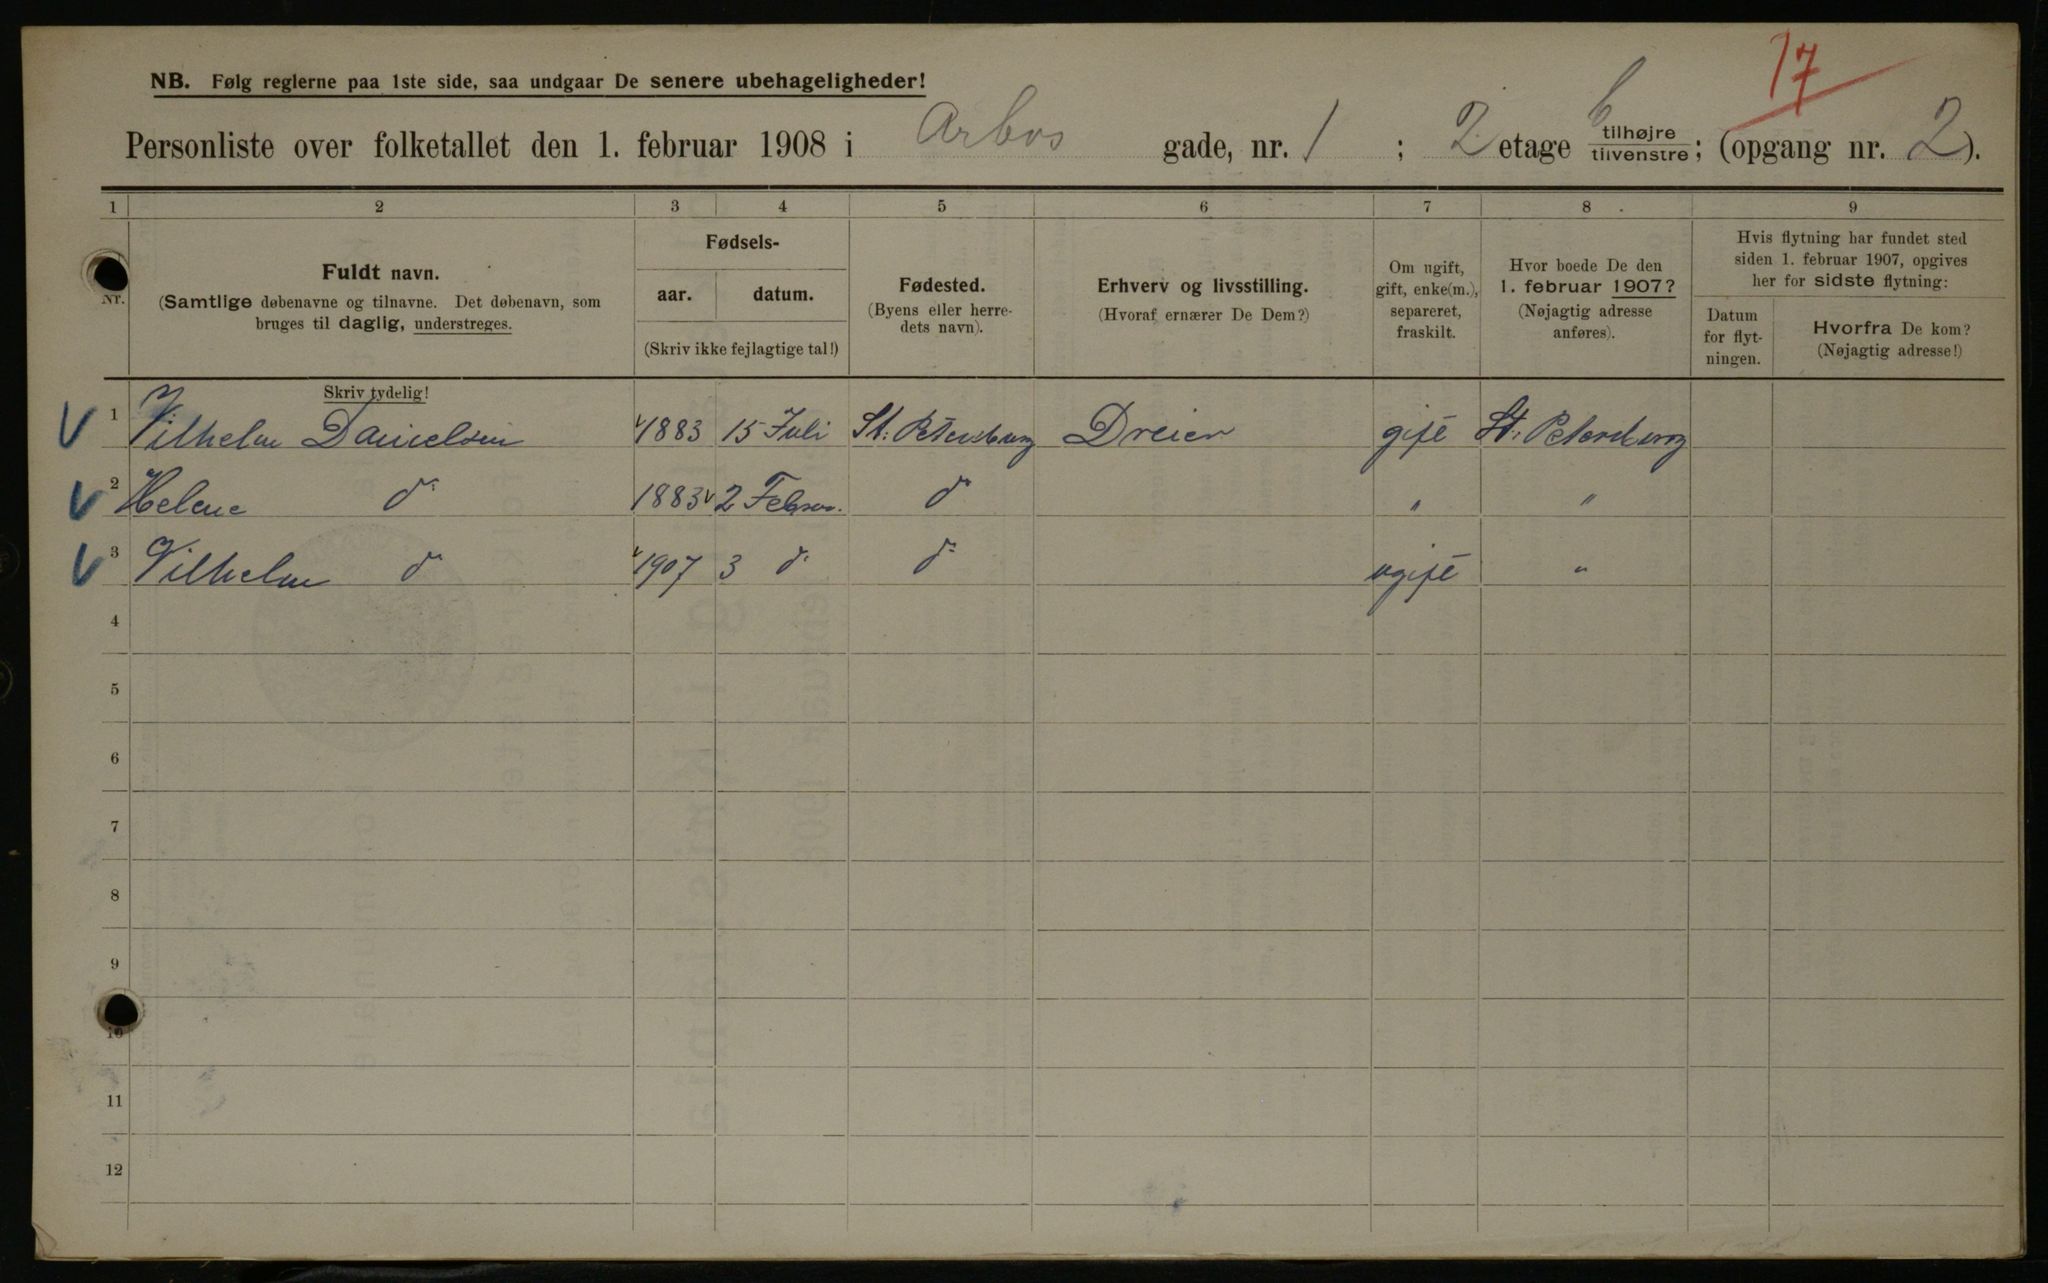 17
NB. Følg reglerne paa 1ste side, saa undgaar De senere ubehageligheder!
Personliste over folketallet den 1. februar 1908 i Arbos gade, nr. 1 ; 2 etage b tilhøjre / tilvenstre; (opgang nr. 2).
1 2 3 4 5 6 7 8 9
Nr.
Fuldt navn.
(Samtlige døbenavne og tilnavne. Det døbenavn, som
bruges til daglig, understreges.
Skriv tydelig!
Fødsels-
aar. datum.
(Skriv ikke fejlagtige tal!)
Fødested.
(Byens eller herre-
dets navn).
Erhverv og livsstilling.
(Hvoraf ernærer De Dem?)
Om ugift,
gift, enke(m.),
separeret,
fraskilt.
Hvor boede De den
1. februar 1907?
(Nøjagtig adresse
anføres).
Hvis flytning har fundet sted
siden 1. februar 1907, opgives
her for sidste flytning:
Datum
for flyt-
ningen.
Hvorfra De kom?
(Nøjagtig adresse!)
1 Vilhelm Danielsen 1883 15 Juli St. Petersburg Dreier gift St. Petersburg
2 Helene do 1883 2 Februar. do " "
3 Vilhelm do 1907 3 do do ugift "
4
5
6
7
8
9
10
11
12